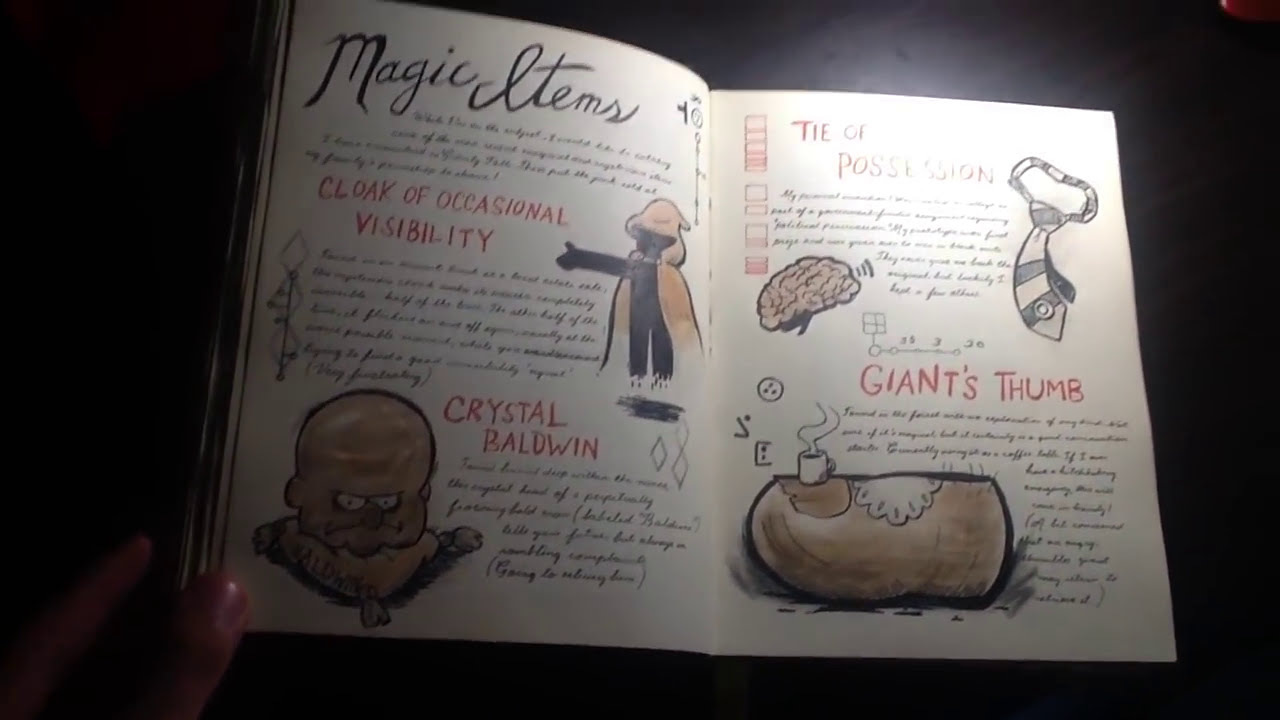 Magic Items
While I'm on the subject, I would like to catalog
some of the more recent magical and mysterious items
I have encountered in Gravity Falls. Then put the
my family's
CLOAK OF OCCASIONAL
VISIBILITY
Found in an ancient trunk at a local estate sale,
this mysterious cloak makes its wearer completely
invisible half of the time. The other half of the
time, it flickers on and off again, usually at the
worst possible moment, while you
trying to find a good invisibility "signal"
(Very frustrating)
CRYSTAL
BALDWIN
Found buried deep within the mines,
the crystal head of a perpetually
frowning bald man (labeled "Baldwin")
tells your future but always in
rambling complaints
(Going to rebury him)
BALDWIN
TIE OF
POSSESSION
My personal invention!
part of a government-funded assignment regarding
"political persuasion." My prototype won first
prize and was given over to men in black suits
They never gave me back the
original, but luckily I
kept a few others.
35 3 30
GIANT'S THUMB
Found in the forest with no explanation of any kind. Not
sure if it's magical, but it certainly is a good conversation
starter. Currently using it as a coffee table. If I am
have a hitchhiking
emergency, this will
come in handy!
(A bit concerned
that an angry,
thumbless giant
may return to
retrieve it.)